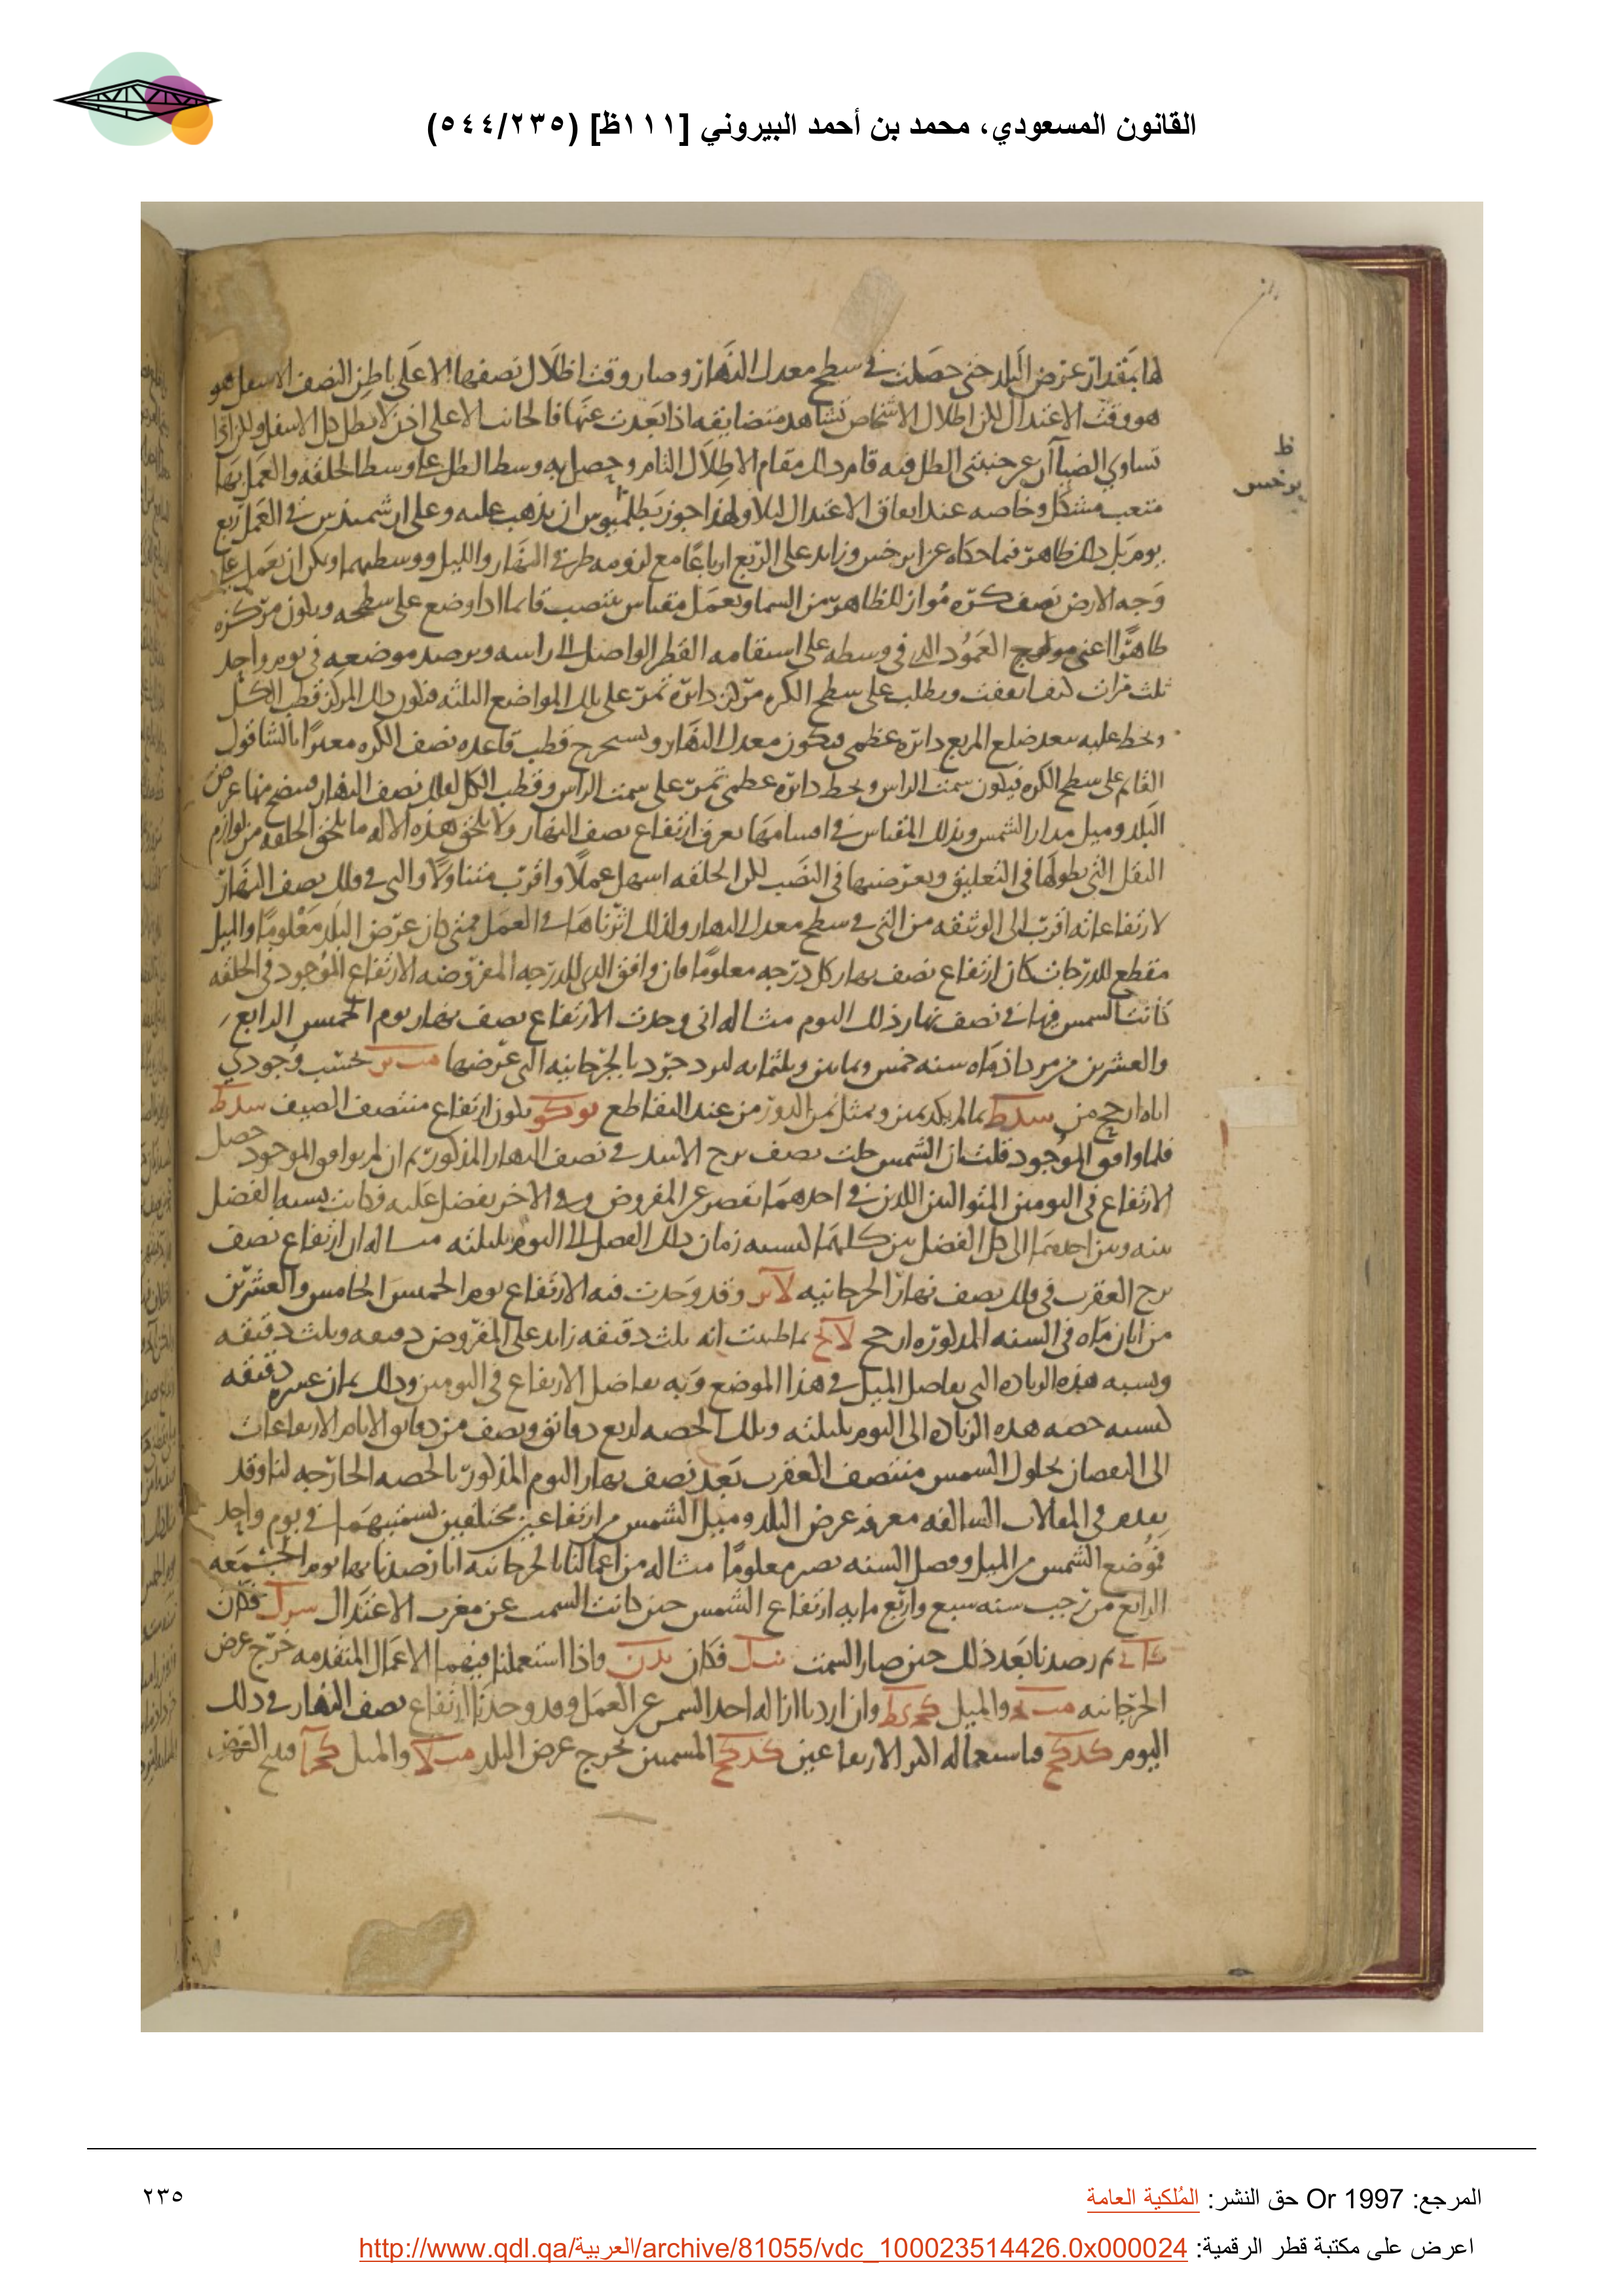 القانون المسعودي، محمد بن أحمد البيروني [١١١ظ] (٥٤٤/٢٣٥)
لها بمقدار عرض البلد حتى حصلت في سطح معدل النهار وصار وقت اظلال نصفها الاعلى باطن النصف الاسفل هو
هو وقت الاعتدال لكن اظلال الاشخاص تشاهد متضايقه اذا بعدت عنها فالجانب الاعلى اذن لا يظل كل الاسفل
تساوي الضياآن عن جنبتي الظل فيه قام ذلك مقام الاظلال التام وحصل به وسط الظل على وسط الحلقه والعمل بها
متعب مشكل وخاصه عند اتفاق الاعتدال ليلا ولهذا جوز بطلميوس ان يذهب عليه وعلى ارشميدس في العمل ربع
يوم بل ذلك ظاهر فيما حكاه عن ابرخس وزايد على الربع ارباعا مع لزومه طرفي النهار والليل ووسطيهما ويمكن ان يعمل على
وجه الارض نصف كره مواز للظاهر من السما ويعمل مقياس ينتصب قايما اذا وضع على سطحه ويكون مركزه
ظاهرا اعني العمود الذي في وسطه على استقامه القطر الواصل الى راسه ويرصد موضعه في يوم واحد
ثلث مرات كيف اتفقت ويطلب على سطح الكره مركز دائره تمر على تلك المواضع الثلثه فيكون ذلك المركز قطب الكل
ويخط عليه ببعد ضلع المربع دائره عظمى فيكون معدل النهار ويستخرج قطب قاعده نصف الكره معبرا بالشاقول
القايم على سطح الكره فيكون سمت الراس ويخط دائره عظمى تمر على سمت الراس وقطب الكل لفلك نصف النهار فيتضح منها عرض
البلد وميل مدار الشمس وبذلك المقياس في اقسامها يعرف ارتفاع نصف النهار ولا يلحق هذه الاله ما يلحق الحلقه من لوازم
الثقل التي بطولها في التعليق وبعرضها في النصب لكن الحلقه اسهل عملا واقرب متناولا والتي في فلك نصف النهار
لارتفاعاته اقرب الى الوثيقه من التي في سطح معدل النهار ولذلك اثرناها في العمل فمتى كان عرض البلد معلوما والميل
مقطع للدرجات كان ارتفاع نصف نهار كل درجه معلوما فان وافق الذي للدرجه المفروضه الارتفاع الموجود في الحلقه
كانت الشمس فيها في نصف نهار ذلك اليوم مثاله اني وجدت الارتفاع نصف نهار يوم الخميس الرابع
والعشرين من مرداذ ماه سنه خمس وثمانين وثلثمايه ليزدجرد بالجرجانيه التي عرضها مب يز بحسب وجودي
اياه ارجح من سد كط
فلما وافق الموجود قلت ان الشمس حلت نصف برج الاسد في نصف النهار المذكور ثم ان لم يوافق الموجود حصل
الارتفاع في اليومين المتواليين اللذين في احدهما نقص عن المفروض وفي الاخر يفضل عليه فكانت نسبه الفضل
بينه وبين احدهما الى كل الفضل بين كليهما كنسبه زمان ذلك الفصل الى اليوم بليلته مثاله ان ارتفاع نصف
برج العقرب في فلك نصف نهار الجرجانيه لا كز وقد وجدت فيه الارتفاع يوم الخميس الخامس والعشرين
من ابان ماه في السنه المذكوره ارجح لا كح بما ظننت انه ثلث دقيقه زايد على المفروض دقيقه وثلث دقيقه
ونسبه هذه الزياده التي تفاضل الميل في هذا الموضع وبه تفاضل الارتفاع في اليومين وذلك ثمان عشره دقيقه
كنسبه حصه هذه الزياده الى اليوم بليلته وتلك الحصه اربع دقائق ونصف من دقائق الايام الارتفاعات
الى النقصان بحلول الشمس منتصف العقرب بعد نصف نهار اليوم المذكور بالحصه الخارجه لنا وقد
تقدم في المقالات السالفه معرفه عرض البلد وميل الشمس من ارتفاعين مختلفين لسمتيهما في يوم واحد
فوضع الشمس من الميل وفصل السنه يصير معلوما مثاله من اعمالنا بالجرجانيه انا رصدنا بها يوم الجمعه
الرابع من رجب سنه سبع واربع مايه ارتفاع الشمس حين كانت السمت عن مغرب الاعتدال فكان
ثم رصدنا بعد ذلك حين صار السمت فكان واذا استعملنا فيهما الاعمال المتقدمه خرج عرض
الجرجانيه والميل وان اردنا ازاله احد السمتين عن العمل وقد وجدنا ارتفاع نصف النهار في ذلك
اليوم كد كح فاستعماله اكبر الارتفاعين كد كح المسمين يخرج عرض البلد مب لا والميل
ظ
برخس
المرجع: Or 1997 حق النشر: المُلكية العامة
٢٣٥
اعرض على مكتبة قطر الرقمية: http://www.qdl.qa/العربية/archive/81055/vdc_100023514426.0x000024